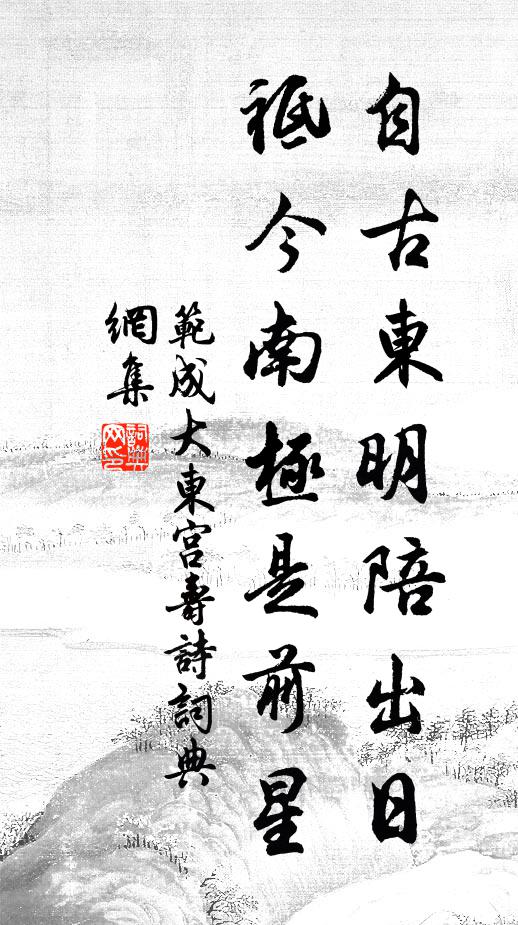 自古東明陪出日
祗今南極是前星
範成大東宮壽詩詞典
網集